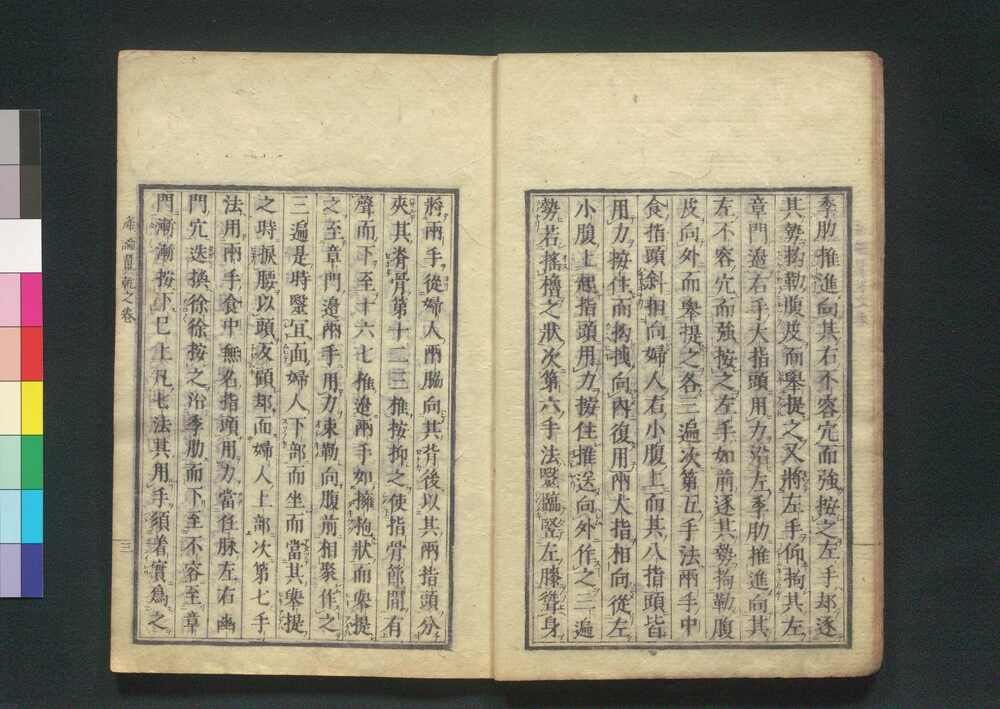 季肋推進向其右不容穴而強按之左手却逐
其勢拘勒腹皮而擧提之又將左手仰拘其左
章門邉右手大指頭用力沿左季肋推進向其
左不容穴而強按之左手如前逐其勢拘勒腹
皮向外而擧提之各三遍次第五手法兩手中
食指頭斜相向婦人右小腹上而其八指頭皆
用力按住而拘拽向內復用兩大指相向從左
小腹上起指頭用力按住推送向外作之三遍
勢若搖櫓之狀次第六手法毉臨竪左膝聳身
將兩手從婦人兩脇向其背後以其兩指頭分
夾其脊骨第十二三椎按抑之使指骨節間有
聲而下至十六七椎邉兩手如擁抱狀而擧提
之至章門邉兩手用力束勒向腹前相聚作之
三遍是時毉宜面婦人下部而坐而當其擧提
之時捩腰以頭反顧却面婦人上部次第七手
法用兩手食中無名指頭用力當任脉左右幽
門穴迭換徐徐按之沿季肋而下至不容至章
門漸漸按下已上凡七法其用手須着實爲之
產論翼乾之卷
三